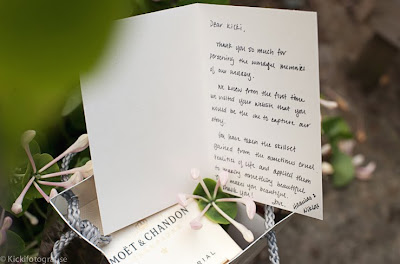 Dear Kicki,
Thank you so much for
preserving the wonderful memories
of our wedding.
We knew from the first time
we visited your website that you
would be the one to capture our
story.
You have taken the skillset
gained from the sometimes cruel
realities of life and applied them
to making something beautiful
make you beautiful.
Thank you!
Love,
MOËT & CHANDON
IMPERIAL
© Kickifotograf.se